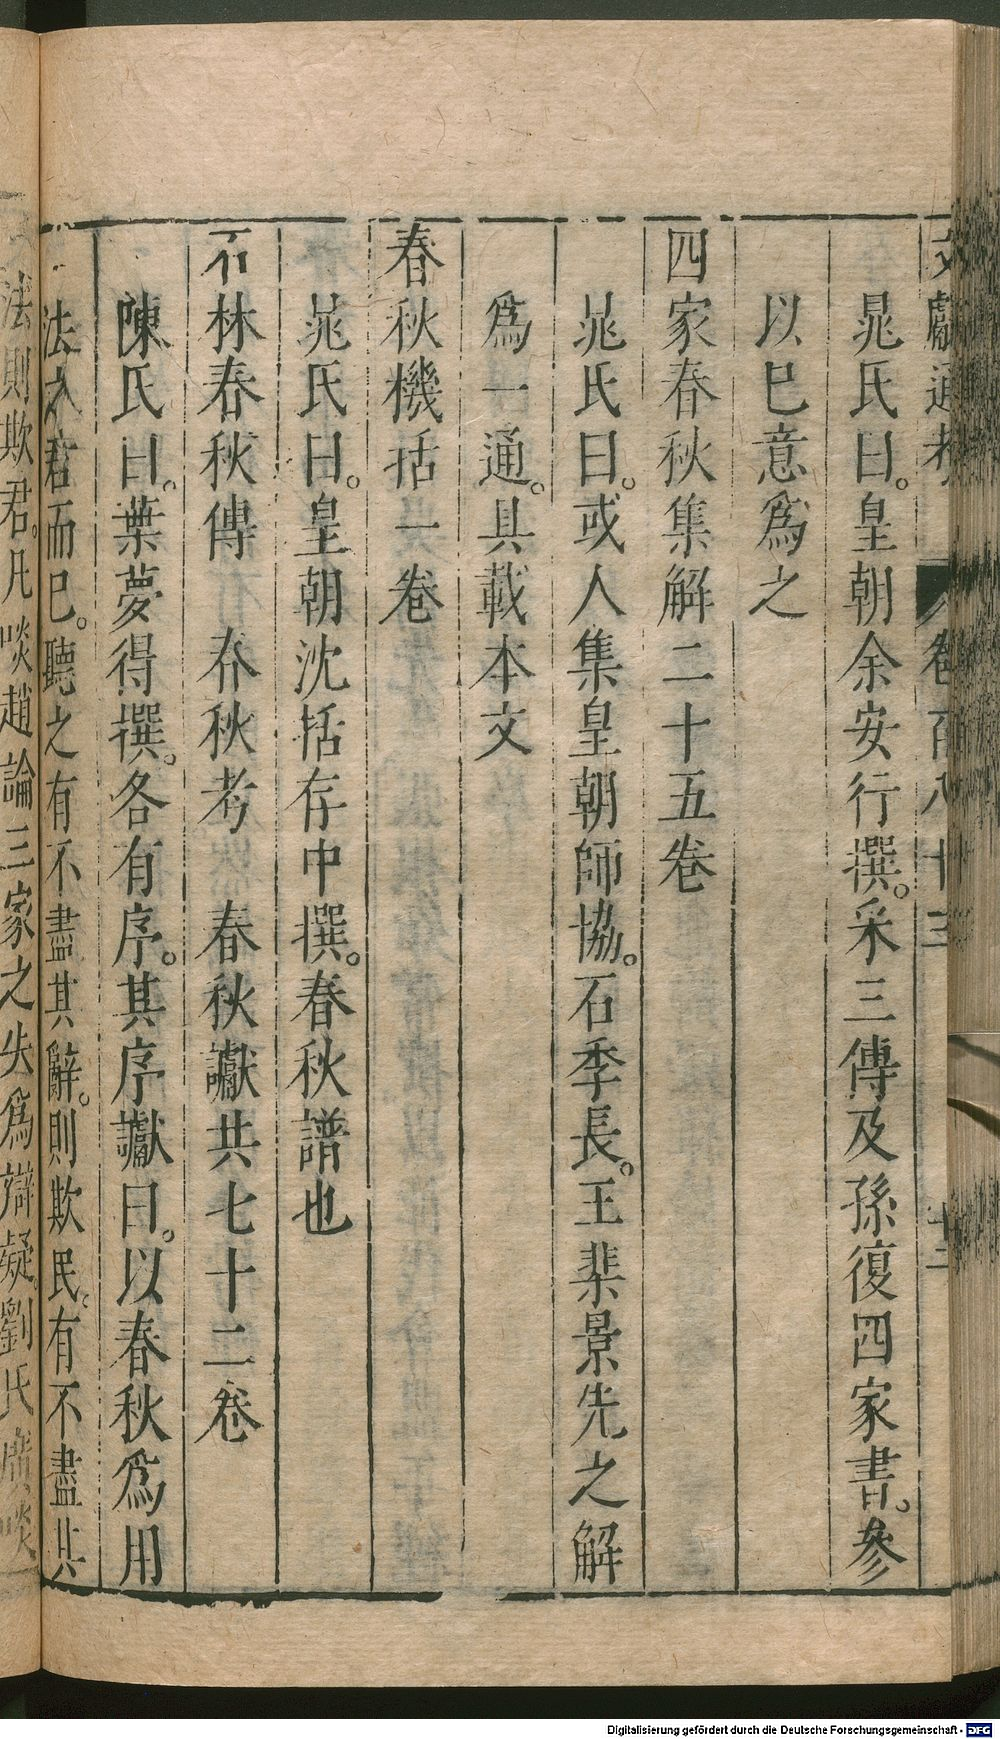 文獻通考 卷百八十三 十二
晁氏曰。皇朝余安行撰。采三傳及孫復四家書。參
以巳意爲之
四家春秋集解二十五卷
晁氏曰。或人集皇朝師協。石季長。王棐景先之解
爲一通。具載本文
春秋機括一卷
晁氏曰。皇朝沈括存中撰。春秋譜也
石林春秋傳 春秋考 春秋讞共七十二卷
陳氏曰。葉夢得撰。各有序。其序讞曰。以春秋爲用
法之君而巳。聽之有不盡其辭。則欺民。有不盡其
法則欺君。凡啖趙論三家之失爲辯疑劉氏廣啖
Digitalisierung gefördert durch die Deutsche Forschungsgemeinschaft - DFG